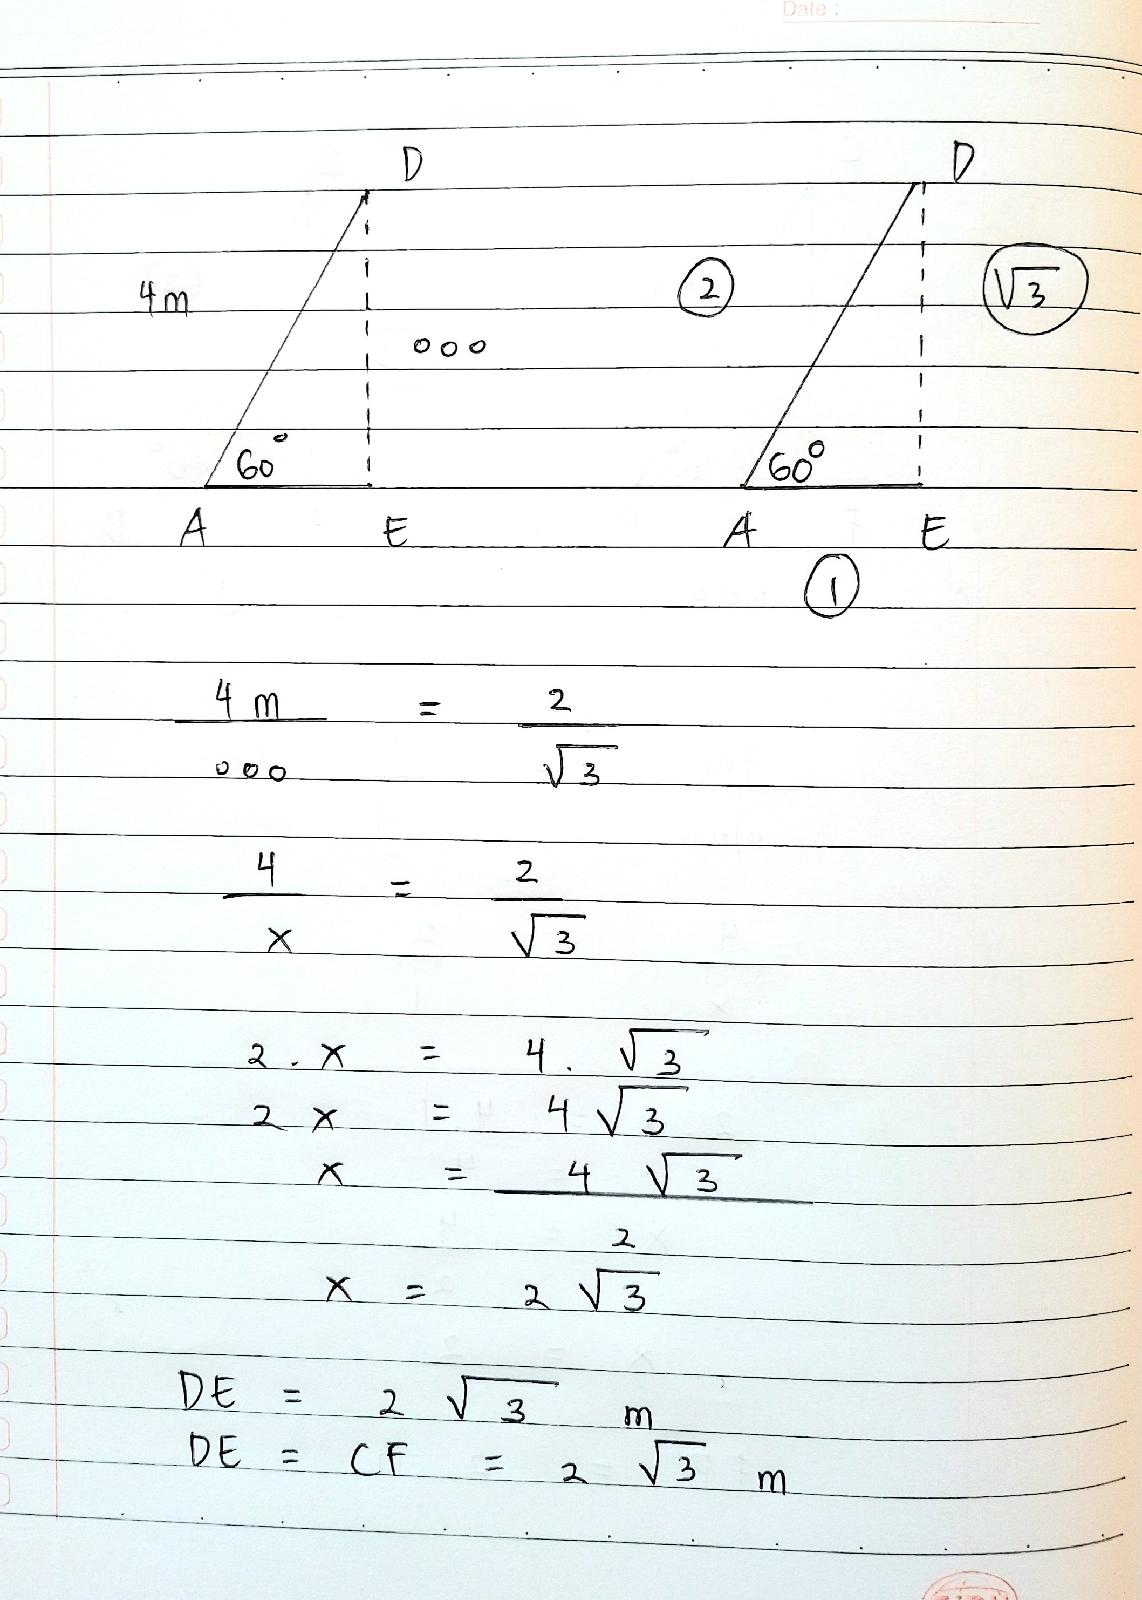 Date :
D D
4m 2 √3
ooo
60° 60°
A E A E
1
4 m = 2
ooo √3
4 = 2
x √3
2 . x = 4 . √3
2 x = 4 √3
x = 4 √3
2
x = 2 √3
DE = 2 √3 m
DE = CF = 2 √3 m